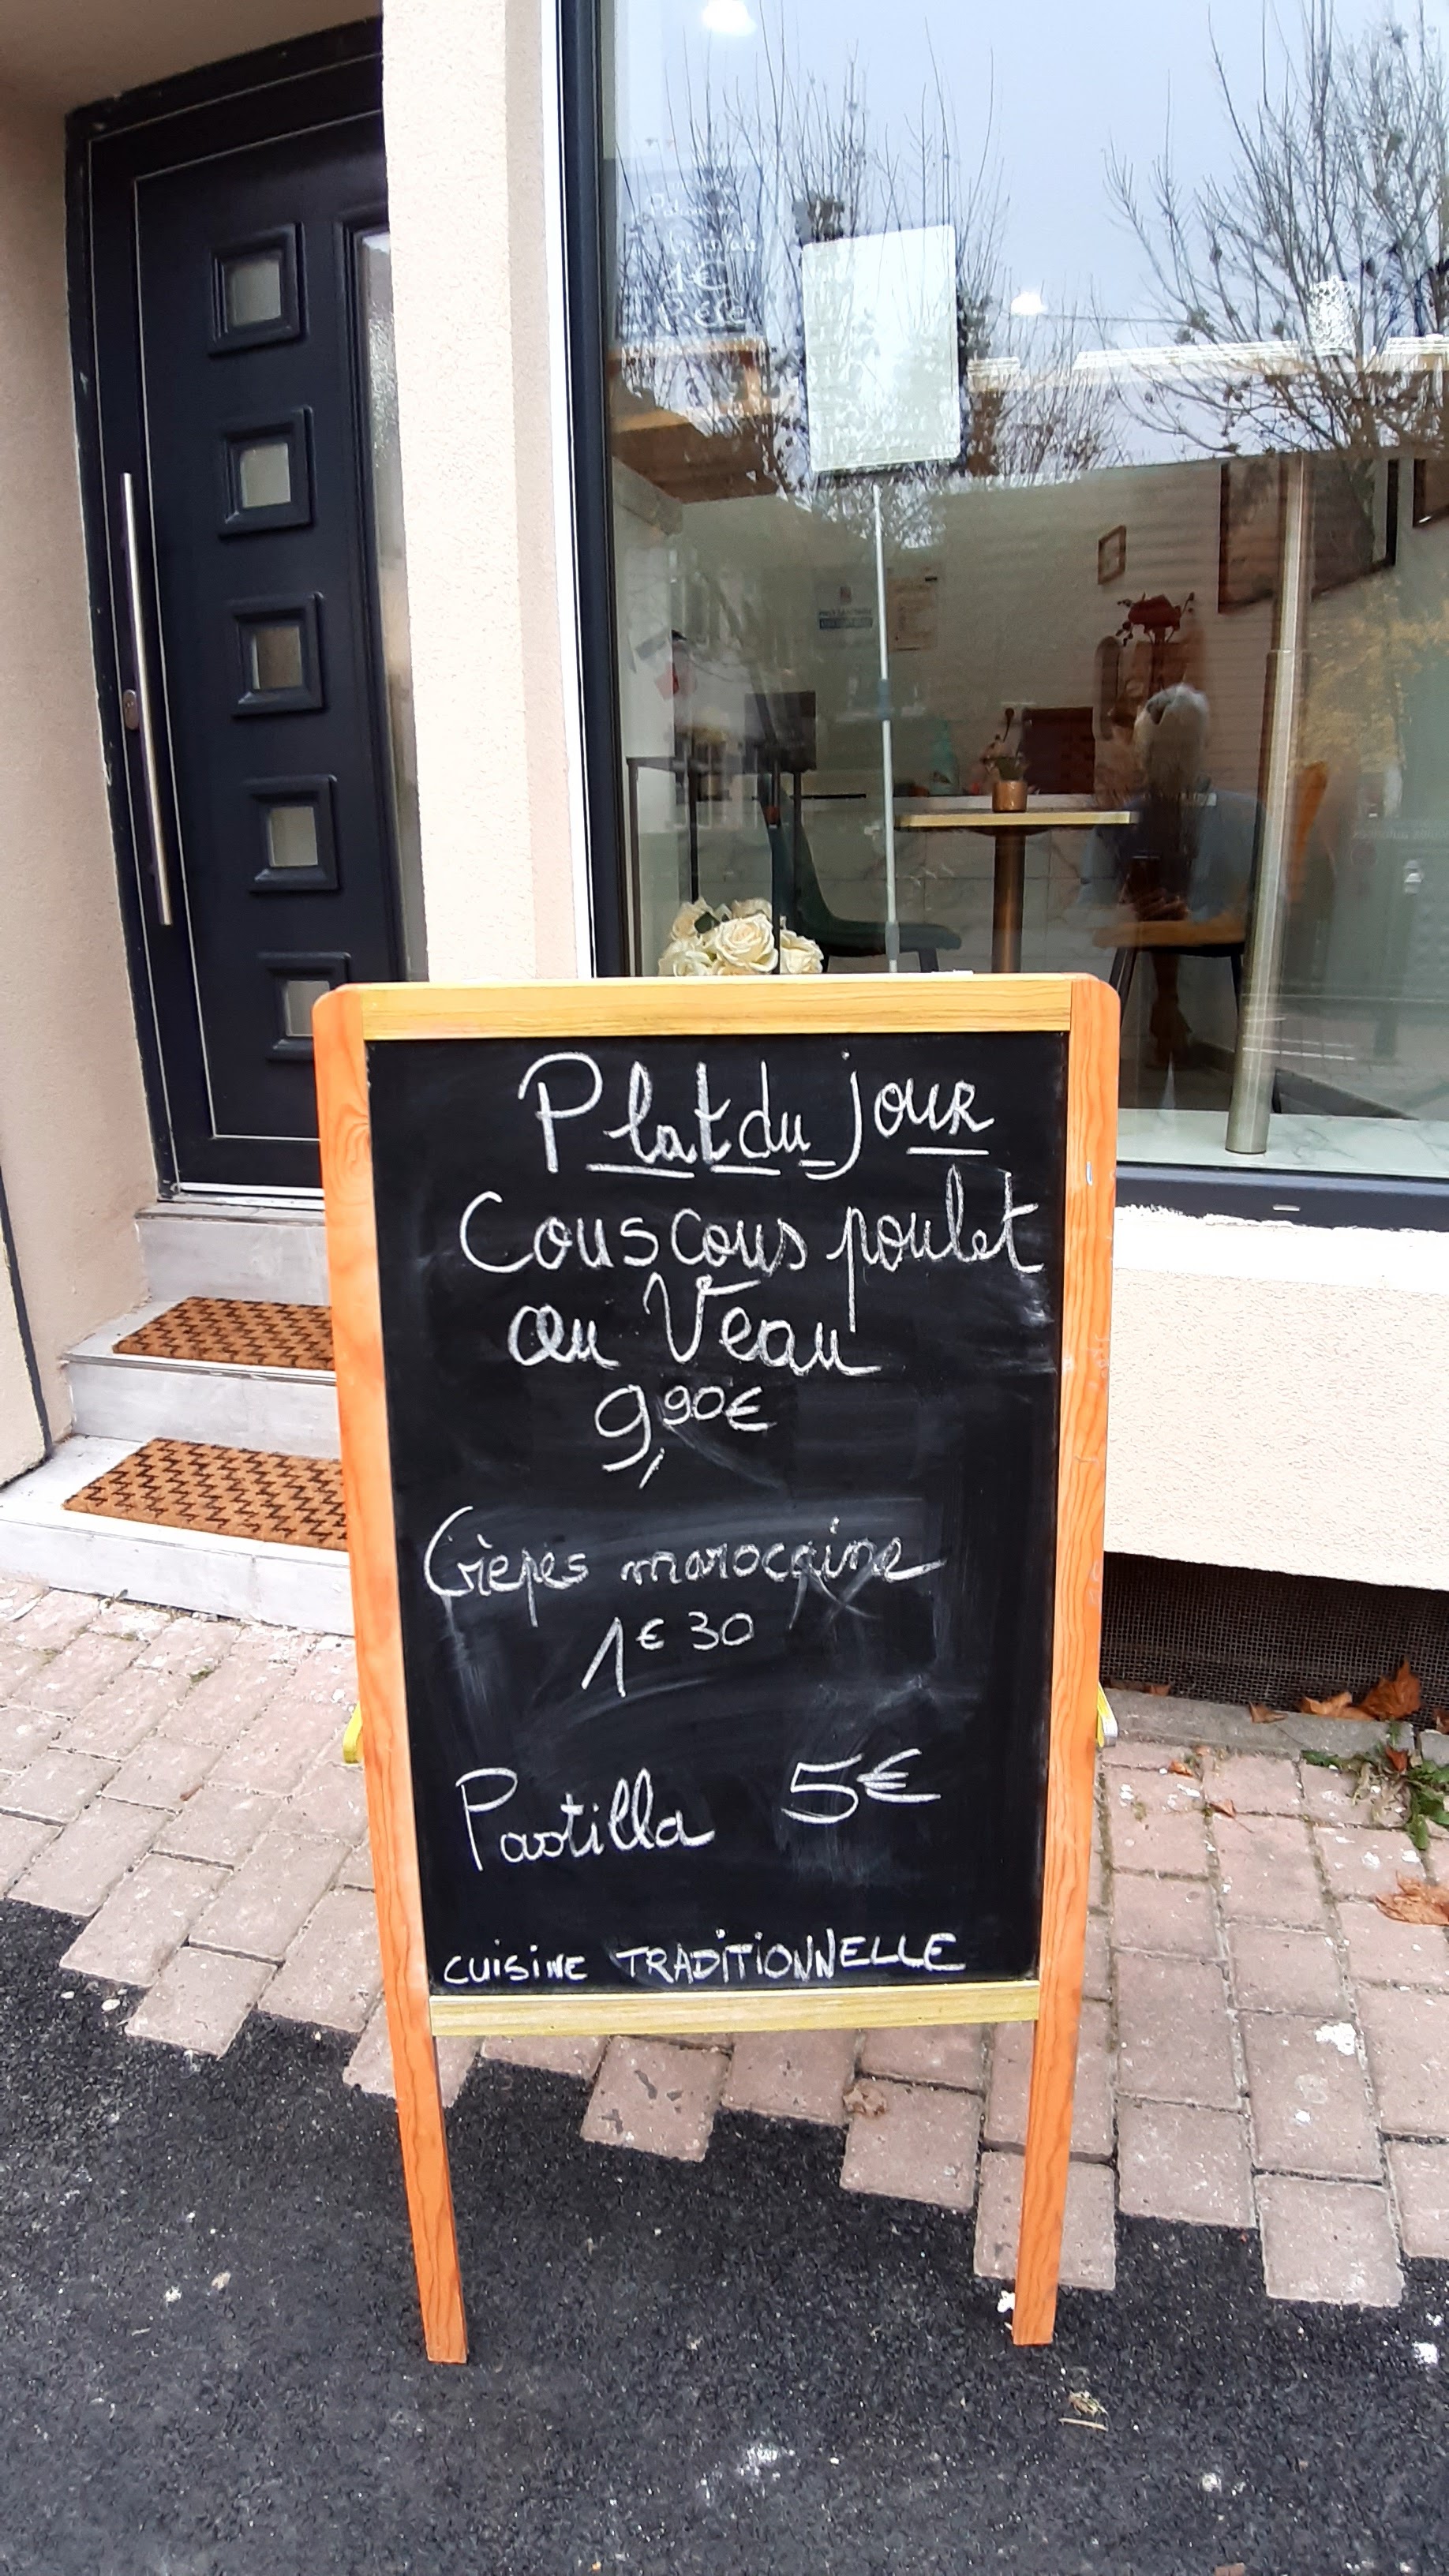 Plat du jour
Couscous poulet
au Veau
9,90€
Crèpes marocaine
1€30
Pastilla 5€
CUISINE TRADITIONNELLE
1€